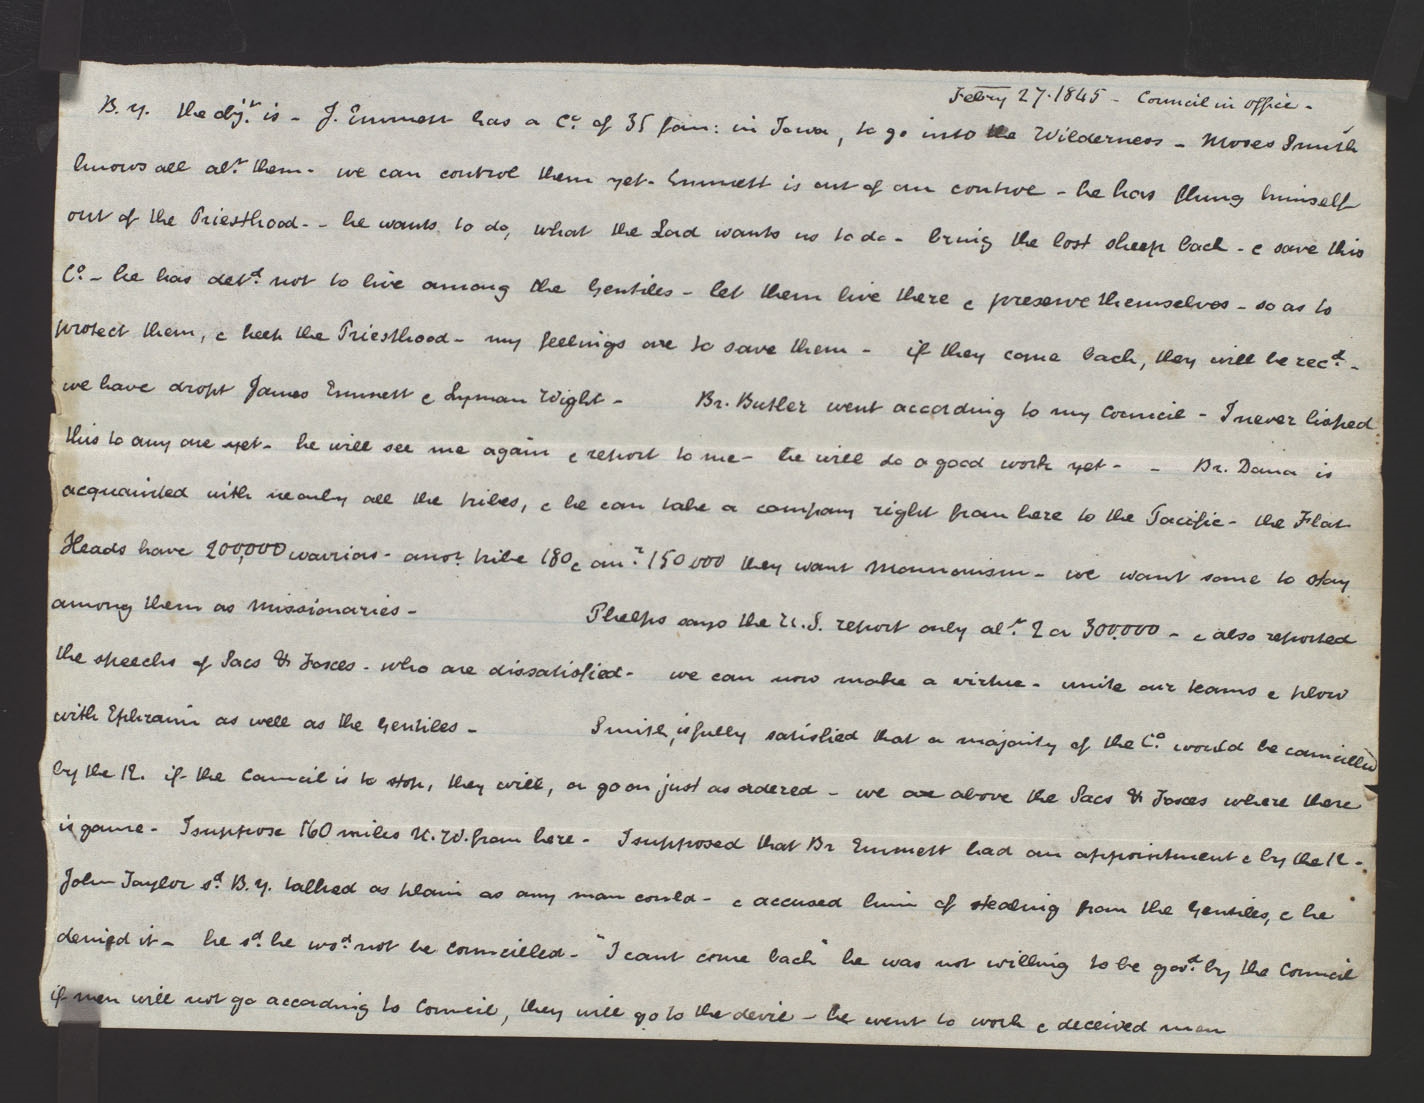 Febry 27. 1845 - Council in office -
B. Y. the obj:t is - J. Emmett has a Co. of 35 fam: in Iowa, to go into the Wilderness - Moses Smith
knows all abt. them - we can control them yet - Emmett is out of our control - he has flung himself
out of the Priesthood - - he wants to do, what the Lord wants us to do - bring the lost sheep back - & save this
Co. - he has detd. not to live among the Gentiles - let them live there & preserve themselves - so as to
protect them, & keep the Priesthood - my feelings are to save them - if they come back, they will be recd. -
we have dropt James Emmett & Lyman Wight - Br. Butler went according to my Council - I never lisped
this to any one yet - he will see me again & report to me - he will do a good work yet - - Br. Dana is
acquainted with nearly all the tribes, & he can take a company right from here to the Pacific - the Flat
Heads have 200,000 warriors - anor. tribe 180 & anr. 150 000 they want Mormonism - we want some to stay
among them as missionaries - Phelps says the U.S. report only abt. 2 or 300.000 - & also reported
the speechs of Sacs & Foxes - who are dissatisfied - we can now make a virtue - unite our teams & plow
with Ephraim as well as the Gentiles - Smith, is fully satisfied that a majority of the Co. would be councilled
by the 12. if the Council is to stop, they will, or go on just as ordered - we are above the Sacs & Foxes where there
is game - I suppose 160 miles N. W. from here - I supposed that Br Emmett had an appointment & by the 12 -
John Taylor sd. B. Y. talked as plain as any man could - & accused him of stealing from the Gentiles, & he
denied it - he sd. he wod. not be councilled - "I cant come back" he was not willing to be govd. by the Council
if men will not go according to Council, they will go to the devil - he went to work & deceived men